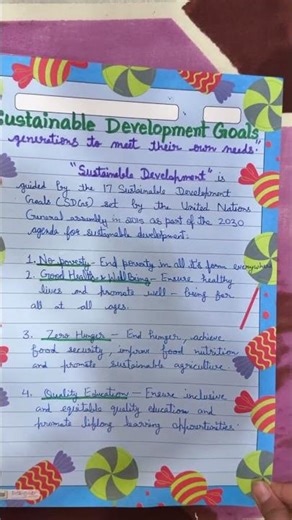 Sustainable Development Goals
generations to meet their own needs.
"Sustainable Development" is
guided by the 17 Sustainable Development
Goals (SDGs) set by the United Nations
General assembly in 2015 as part of the 2030
agenda for sustainable development.
1. No poverty - End poverty in all it's form everywhere
2. Good Health & Well Being - Ensure healthy
lives and promote well - being for
all at all ages.
3. Zero Hunger - End hunger, achieve
food security, improve food nutrition
and promote sustainable agriculture
4. Quality Education - Ensure inclusive
and equitable quality education and
promote lifelong learning opportunities.